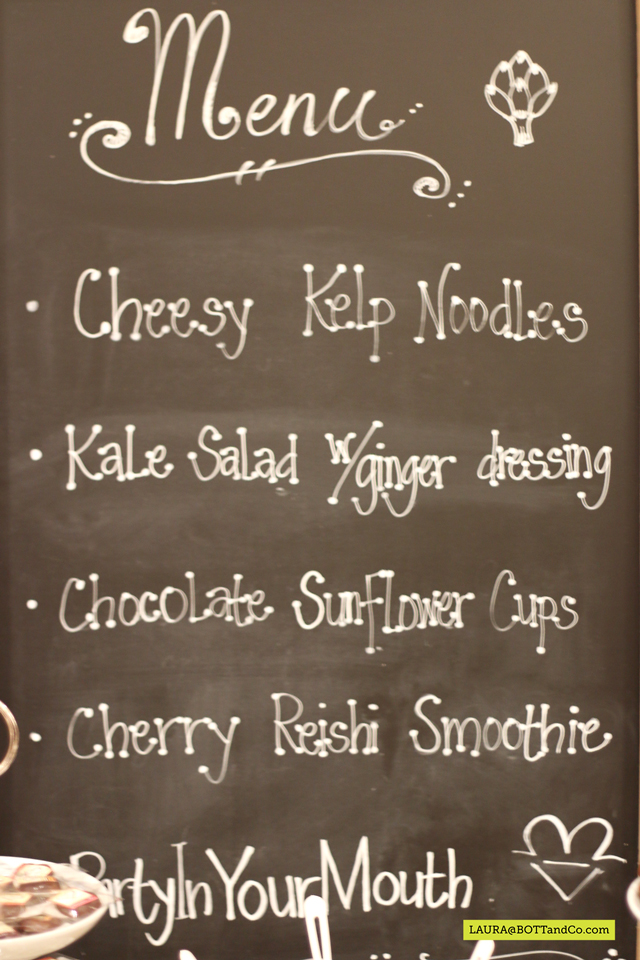 Menu
• Cheesy Kelp Noodles
• Kale Salad w/ginger dressing
• Chocolate Sunflower Cups
• Cherry Reishi Smoothie
PartyInYourMouth
LAURA@BOTTandCo.com